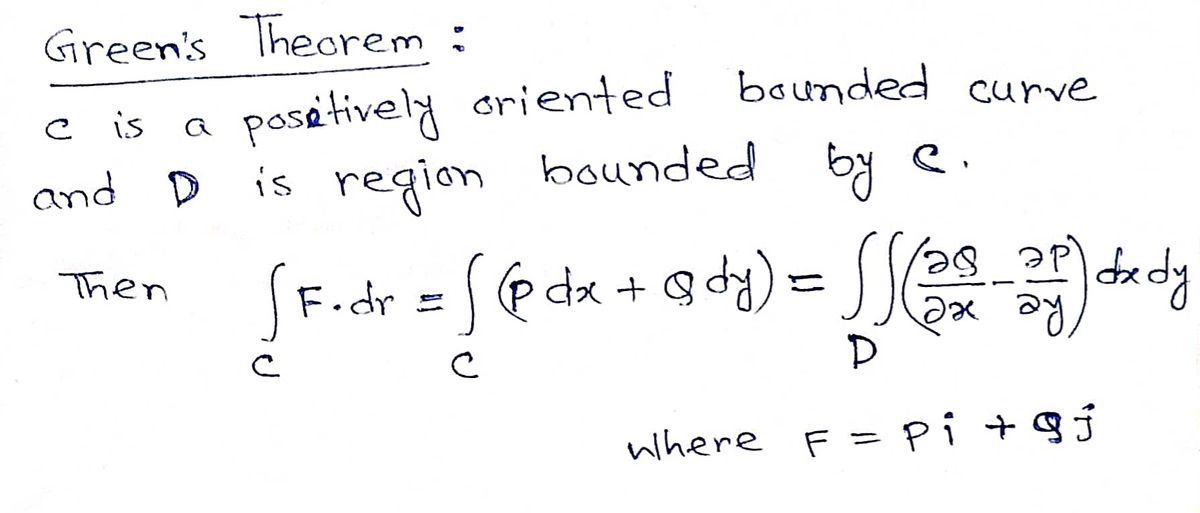 Green's Theorem :
C is a positively oriented bounded curve
and D is region bounded by C.
Then ∫_C F·dr = ∫_C (P dx + Q dy) = ∬_D (∂Q/∂x - ∂P/∂y) dx dy
where F = Pi + Qj